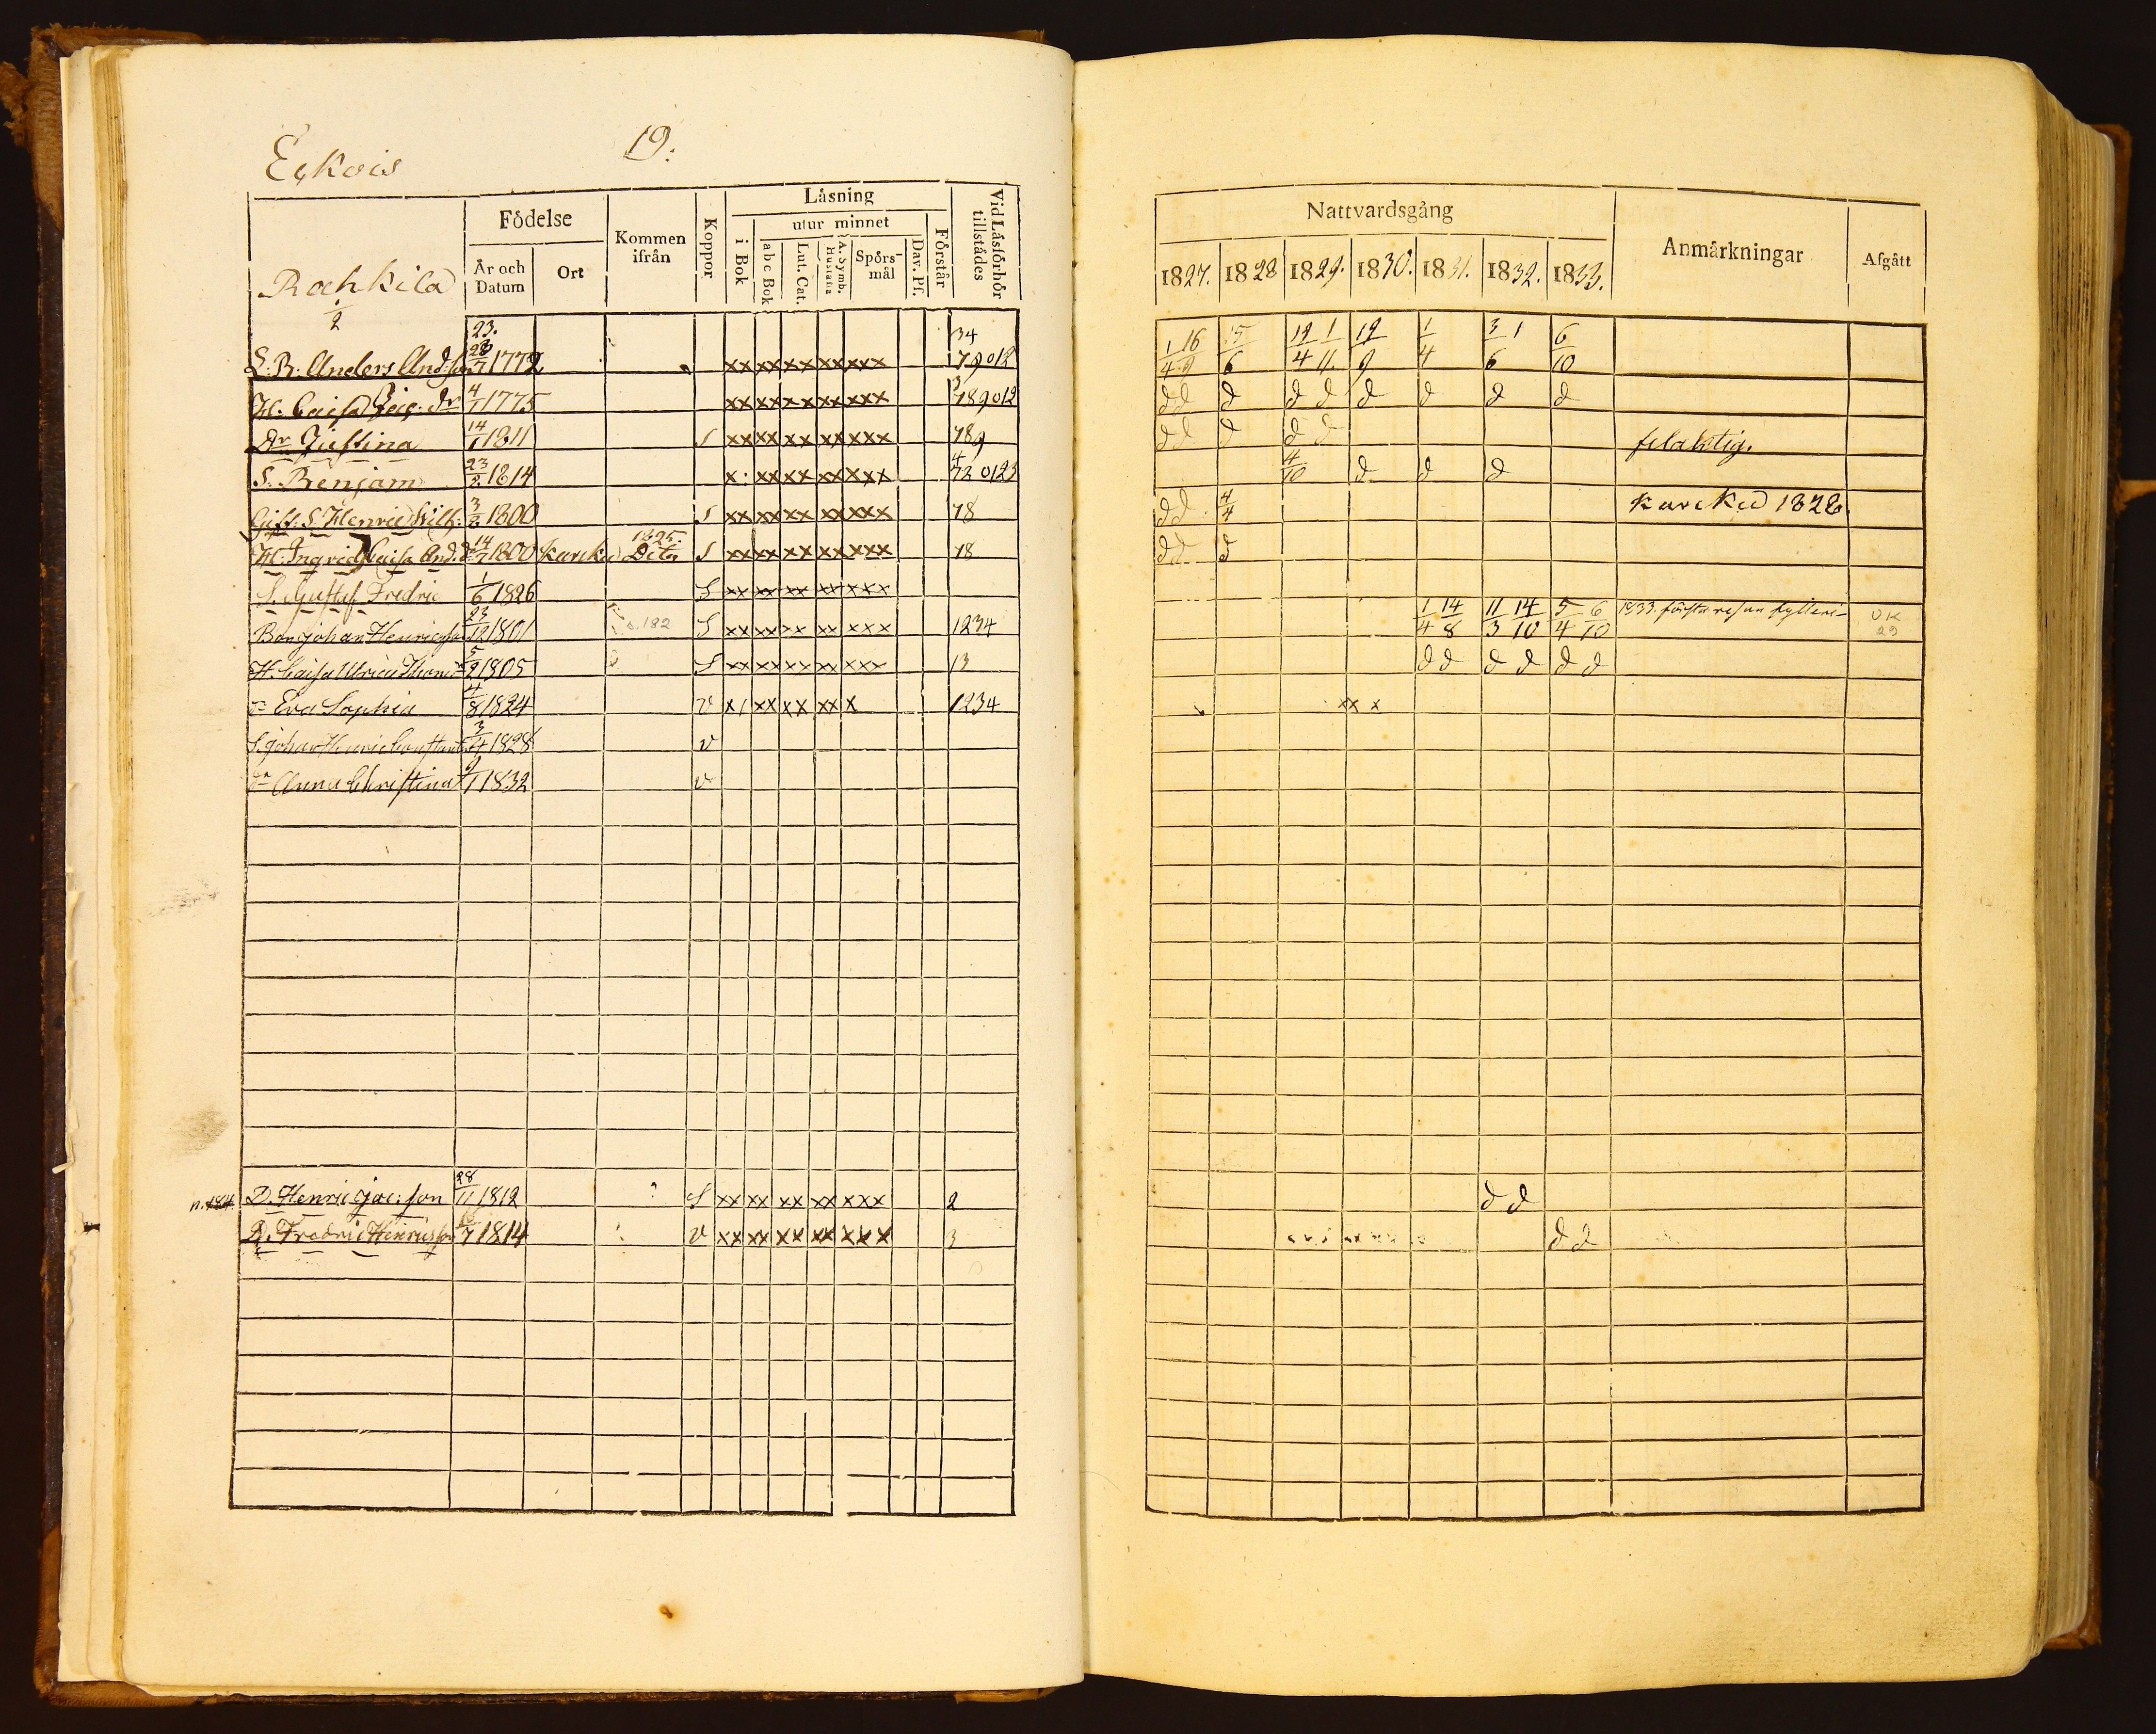 19.
Eckois
Födelse
Kommen ifrån
Koppor
Läsning
i Bok
utur minnet
abc Bok
Lut. Cat.
A. Symb. Hustafla
Spörs-mål
Dav. Pf.
Förstår
Vid Läsförhör tillstädes
År och Datum
Ort
Rachkila
1/2
L. B. Anders And:son 23. 28/7 1772 xx xx xx xx xxx 34 79012
H. Caisa Jac. dr 4/1 1775 xx xx xx xx xxx 3 789012
Dr Justina 14/1 1811 S xx xx xx xx xxx 789
S. Benjam 23/2 1814 x. xx xx xx xxx 4 720123
Gift. S. Henric Wilh: 3/2 1800 S xx xx xx xx xxx 78
H. Ingrid Caisa And. dr 14/7 1800 Karcku 1825. Dito S xx xx xx xx xxx 78
S. Gustaf Fredric 1/6 1826 S xx xx xx xx xxx
Bon. Johan Henricsson 23/12 1801 s. 182 S xx xx xx xx xxx 1234
H. Caisa Ulrica Thom. dr 5/9 1805 S xx xx xx xx xxx 13
dr Eva Sophia 4/8 1824 v x/ xx xx xx x 1234
S. Johan Henric Constant. 3/4 1828 v
dr Anna Christina 9/1 1832 v
n. 184. D. Henric Jac:son 28/11 1812 S xx xx xx xx xxx 2
D. Fredric Henricsson 7 1814 v xx xx xx xx xxx 3
Nattvardsgång
Anmärkningar
Afgått
1827. 1828 1829. 1830. 1831. 1832. 1833.
1/4 16/9 15/6 19/4 1/11 19/9 1/4 3/6 1 6/10
d d d d d d d d d
d d d d d felaktig.
4/10 d d d
d d 4/4 Karcku 1828.
d d d
1/4 14/8 11/3 14/10 5/4 6/10 1833. första resan fylleri- UK 29
d d d d d d
xx x
d d
d d